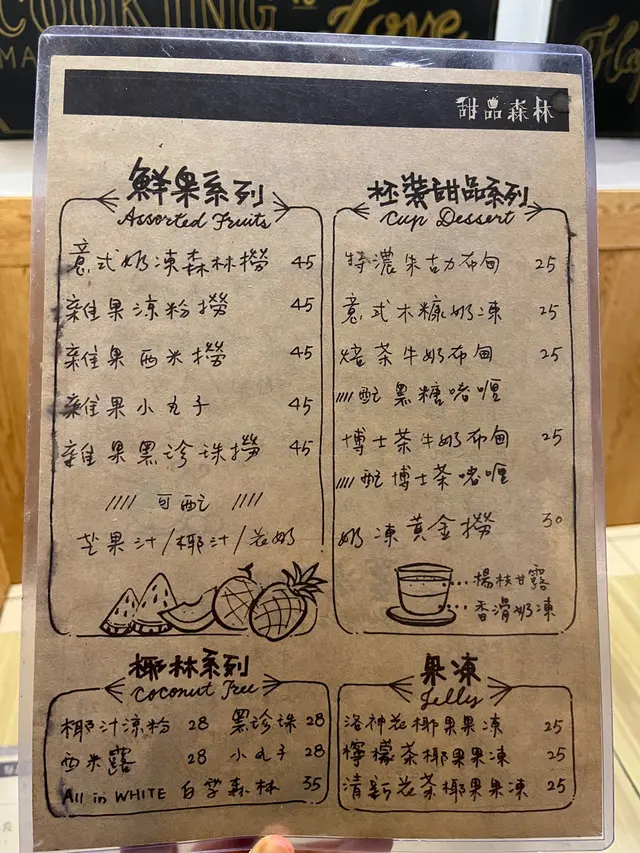 COOKING
Love
MA
甜品森林
鮮果系列
Assorted Fruits
意式奶凍森林撈 45
雜果涼粉撈 45
雜果西米撈 45
雜果小丸子 45
雜果黑珍珠撈 45
//// 可配 ////
芒果汁/椰汁/花奶
杯裝甜品系列
Cup Dessert
特濃朱古力布甸 25
意式木糠奶凍 25
焙茶牛奶布甸 25
////配黑糖啫喱
博士茶牛奶布甸 25
////配博士茶啫喱
奶凍黃金撈 30
楊枝甘露
香滑奶凍
椰林系列
Coconut Tree
椰汁涼粉 28 黑珍珠 28
西米露 28 小丸子 28
All in WHITE 白雪森林 35
果凍
Jelly
洛神花椰果果凍 25
檸檬茶椰果果凍 25
清新花茶椰果果凍 25